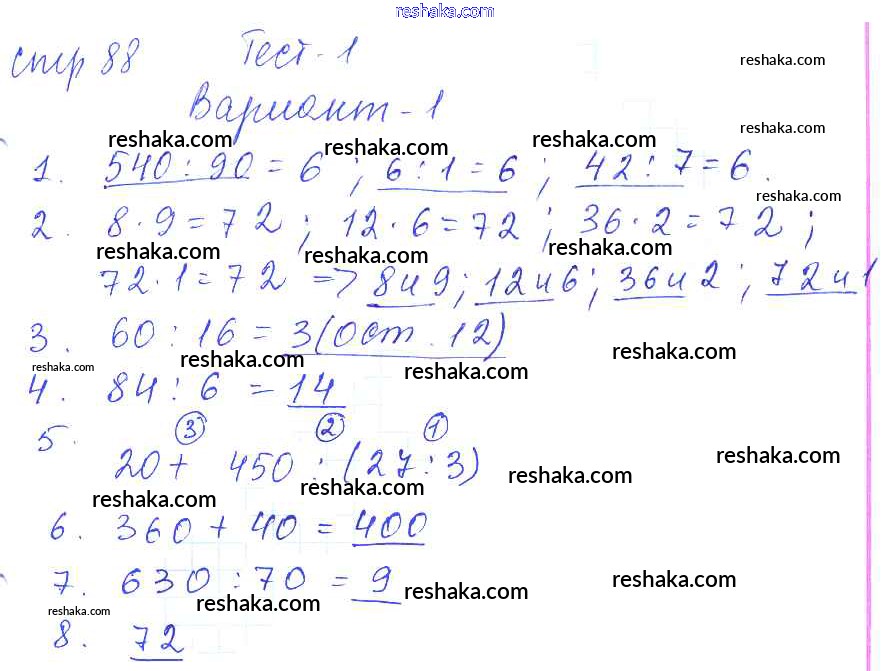 reshaka.com
стр 88 Тест-1
reshaka.com
Вариант-1
reshaka.com
reshaka.com reshaka.com reshaka.com
1. 540 : 90 = 6 ; 6 : 1 = 6 ; 42 : 7 = 6.
reshaka.com
2. 8 · 9 = 72 ; 12 · 6 = 72 ; 36 · 2 = 72 ;
reshaka.com reshaka.com reshaka.com
72 · 1 = 72 => 8 и 9; 12 и 6; 36 и 2; 72 и 1
3. 60 : 16 = 3 (Ост. 12)
reshaka.com reshaka.com reshaka.com reshaka.com
4. 84 : 6 = 14
5. ③ ② ①
20 + 450 : (27 : 3)
reshaka.com reshaka.com reshaka.com reshaka.com
6. 360 + 40 = 400
7. 630 : 70 = 9
reshaka.com reshaka.com reshaka.com reshaka.com
8. 72